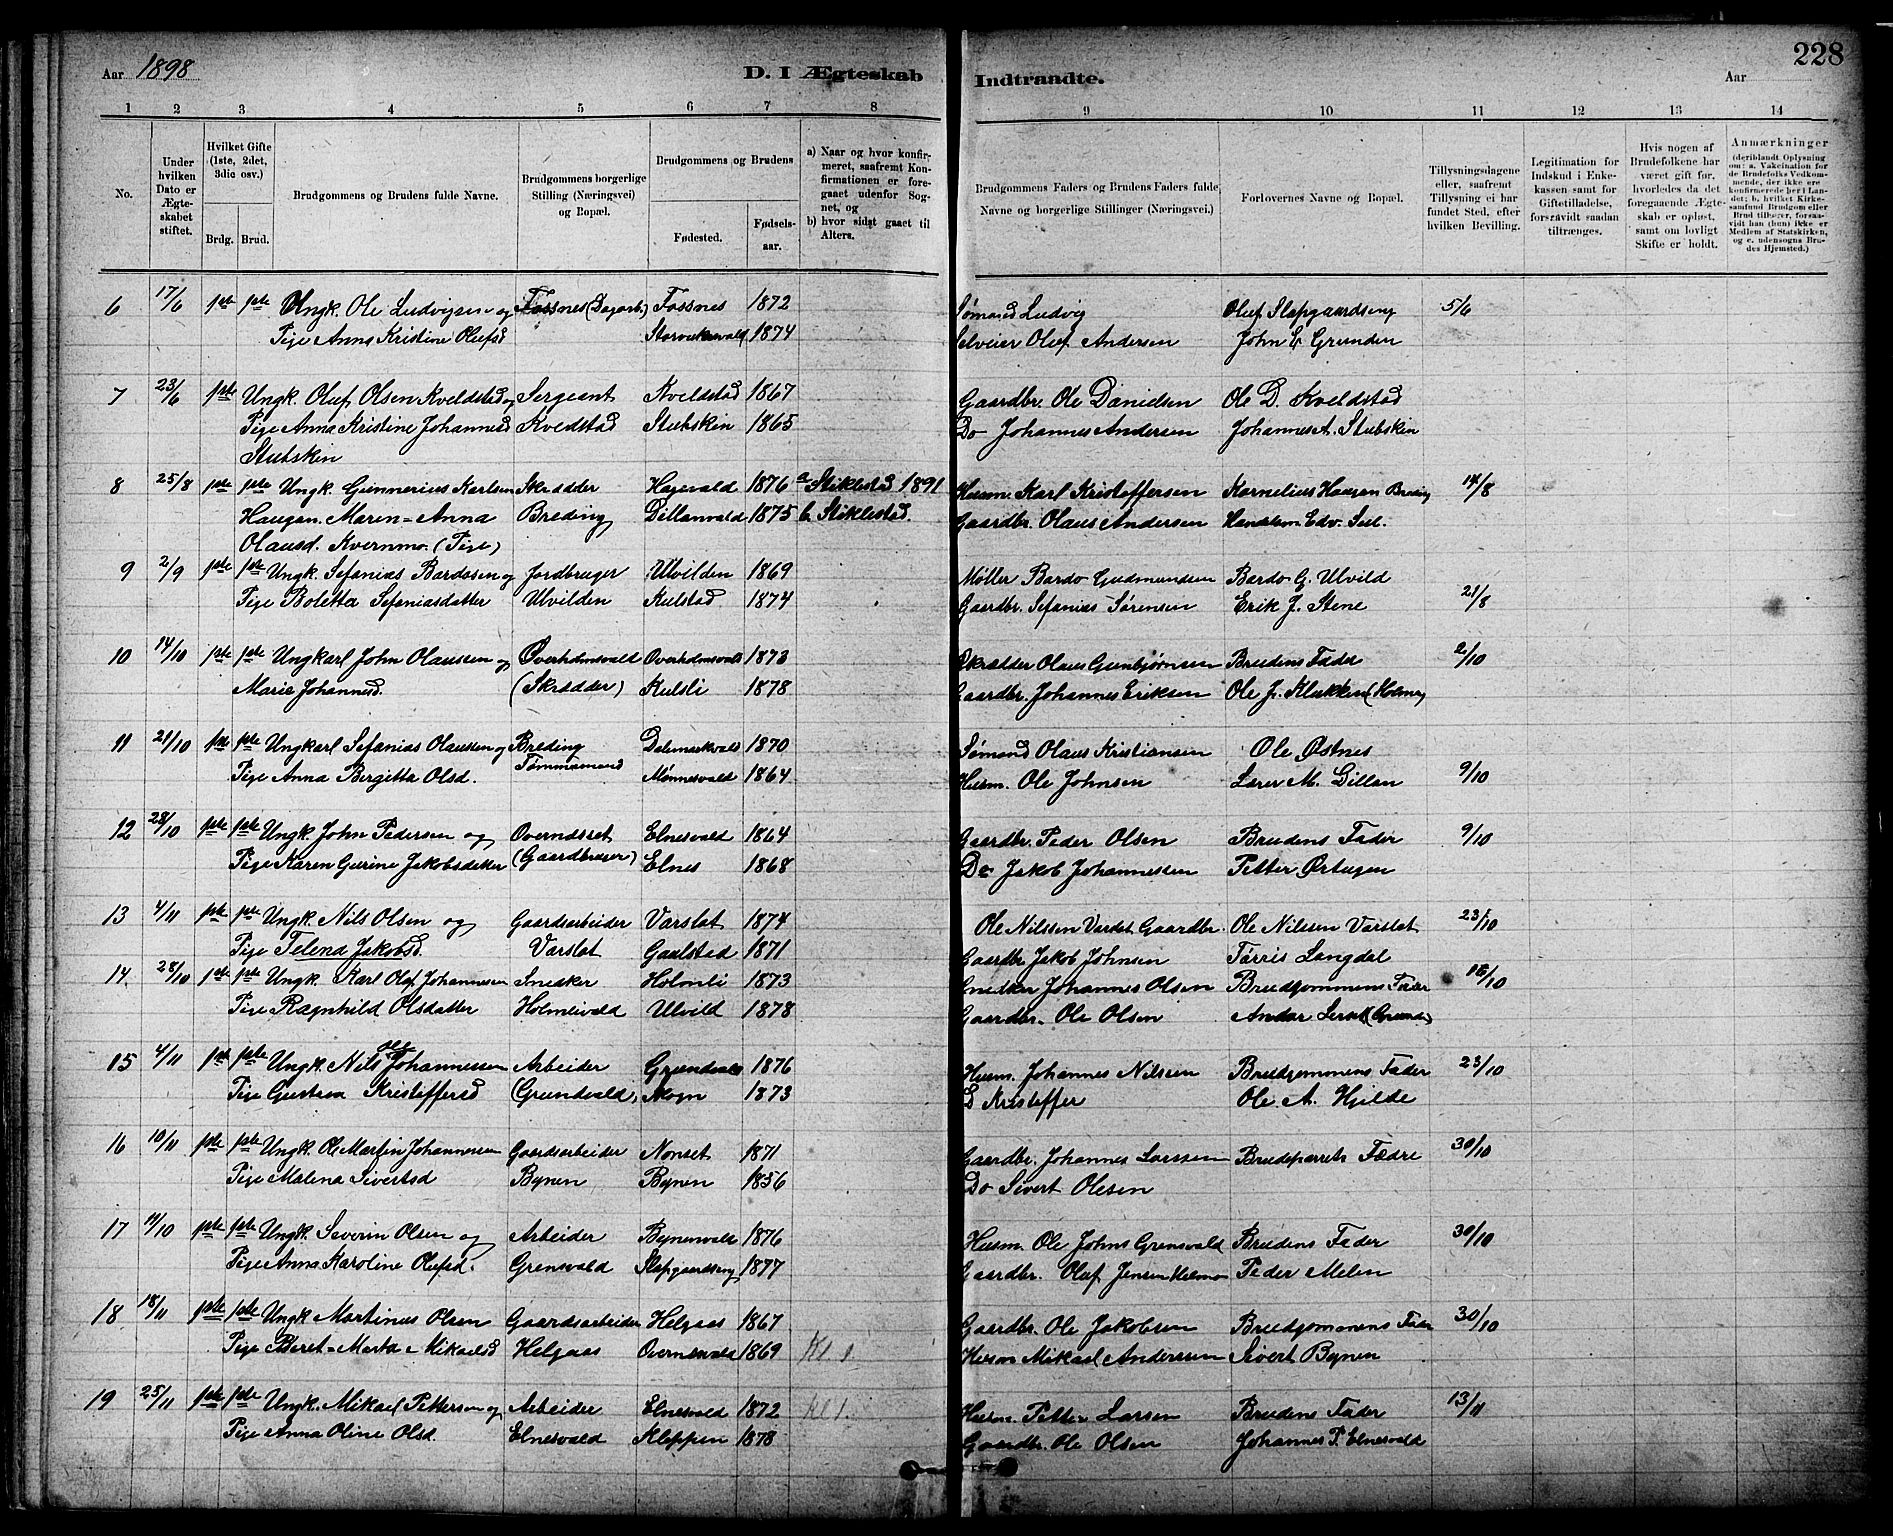 228
Aar 1898
D. I Ægteskab Indtraadte.
Aar
1 2 3 4 5 6 7 8 9 10 11 12 13 14
No.
Under hvilken Dato er Ægte-skabet stiftet.
Hvilket Gifte (1ste, 2det, 3die osv.)
Brdg. Brud.
Brudgommens og Brudens fulde Navne.
Brudgommens borgerlige Stilling (Næringsvei) og Bopæl.
Brudgommens og Brudens
Fødested. Fødsels-aar.
a) Naar og hvor konfir-meret, saafremt Kon-firmationen er fore-gaaet udenfor Sog-net, og
b) hvor sidst gaaet til Alters.
Brudgommens Faders og Brudens Faders fulde Navne og borgerlige Stillinger (Næringsvei.)
Forlovernes Navne og Bopæl.
Tillysningsdagene eller, saafremt Tillysning ei har fundet Sted, efter hvilken Bevilling.
Legitimation for Indskud i Enke-kassen samt for Giftetilladelse, forsaavidt saadan tiltrænges.
Hvis nogen af Brudefolkene har været gift før, hvorledes da det foregaaende Ægte-skab er opløst, samt om lovligt Skifte er holdt.
Anmærkninger (deriblandt Oplysning om: a. Vakcination for de Brudefolks Vedkom-mende, der ikke ere konfirmerede her i Lan-det; b. hvilket Kirke-samfund Brudgom eller Brud tilhører, forsaa-vidt han (hun) ikke er Medlem af Statskirken, og c. udensogns Bru-des Hjemsted.)
6 17/6 1ste 1ste Ungk. Ole Ludvigsen og Fossnes (Dagarb.) Fossnes 1872 Sømand Ludvig Oluf Slapgaardseng 5/6
Pige Anna Kristine Olufsd 1874 Selveier Oluf Andersen John E Grunden
7 23/6 1ste Ungk. Oluf Olsen Kveldstad og Sergeant Kveldstad 1867 Gaardbr. Ole Danielsen Ole D. Kveldstad
Pige Anna Kristine Johannesd Kveldstad Stubskin 1865 Do Johannes Andersen Johannes A. Stubskin
Stubskin
8 25/8 1ste 1ste Ungk. Gunnerius Karlsen Skrædder Hagevald 1876 a Stiklestad 1891 Husm. Karl Kristoffersen Kornelius Haugan Breding 14/8
Haugan. Maren-Anna Breding Dillanvald 1875 b. Stiklestad. Gaardbr. Olaus Andersen Handelsm. Edv. Sul.
Olausd. Kvernmo. (Pige)
9 2/9 1ste 1ste Ungk. Sefanias Bardosen og Jordbruger Ulvilden 1869 Møller Bardo Gudmundsen Bardo G. Ulvild
Pige Boletta Sefaniasdatter Ulvilden Kulstad 1874 Gaardbr. Sefanias Sørensen Erik J. Stene 21/8
10 14/10 1ste 1ste Ungkarl John Olaussen og Overholmsvald Overholmsvald 1873 Skrædder Olaus Gunbjørnsen Brudens Fader 2/10
Marie Johannesd. (Skrædder) Kulsli 1878 Gaardbr. Johannes Eriksen Ole J. Klukken (Holmen)
11 21/10 1ste 1ste Ungkarl Sefanias Olaussen og Breding Dalemarkvald 1870 Sømand Olaus Kristiansen Ole Østnes
Pige Anna Bergitta Olsd. Tømmermand Mønnesvald 1864 Husm. Ole Johnsen Lærer M. Dillan 9/10
12 28/10 1ste 1ste Ungk. John Pedersen og Overnesset Elnesvald 1864 Gaardbr. Peder Olsen Brudens Fader 9/10
Pige Karen Gurine Jakobsdatter (Gaardbruger) Elnes 1868 Do Jakob Johannessen Petter Ørtugen
13 4/11 1ste 1ste Ungk. Nils Olsen og Gaardsarbeider Varslot 1874 Ole Nilssen Gaardbr. Ole Nilssen Varslot 23/10
Pige Telena Jakobsd. Varslot Gaalstad 1871 Gaardbr. Jakob Johnsen Tørris Langdal
14. 28/10 1ste 1ste Ungk. Karl Olof Johannessen Snedker Holmli 1873 Snedker Johannes Olsen Brudgommens Fader 16/10
Pige Ragnhild Olsdatter Holmlivald Ulvild 1878 Gaardbr. Ole Olsen
15 4/11 1ste 1ste Ungk. Nils Olaf Johannessen Arbeider Grundvald 1876 Husm. Johannes Nilssen Brudgommens Fader 23/10
Pige Gustava Kristoffersd (Grundvald) Mogn 1873 D Kristoffer Ole. A. Hjelde
16 10/11 1ste 1ste Ungk. Ole Martin Johannessen Gaardsarbeider Nonset 1871 Gaardbr. Johannes Larssen Brudeparrets Fædre 30/10
Pige Malena Sivertsd Bynen Bynen 1856 Do Sivert Olesen
17 11/10 1ste 1ste Ungk. Severin Olsen og Arbeider Bynenvald 1876 Husm. Ole Johns Grensvald Brudens Fader 30/10
Pige Anna Karoline Olufsd. Grensvald Slapgaardseng 1877 Gaardbr. Oluf Jensen Peder Melen
18 18/11 1ste 1ste Ungk Martinus Olsen Gaardsarbeider Helgaas 1867 Gaardbr. Ole Jakobsen Brudgommens Fader 30/10
Pige Beret-Marta-Mikaelsd Helgaas Overnesvald 1869 Kl. 1. Husm Mikael Anderssen Sivert Bynen
19 25/11 1ste 1ste Ungk. Mikael Pettersen og Arbeider Elnesvald 1872 Kl 1. Husm. Petter Larsen Brudens Fader 13/11
Pige Anna Oline Olsd. Elnesvald Kleppen 1878 Gaardbr. Ole Olsen Johannes P. Elnesvald